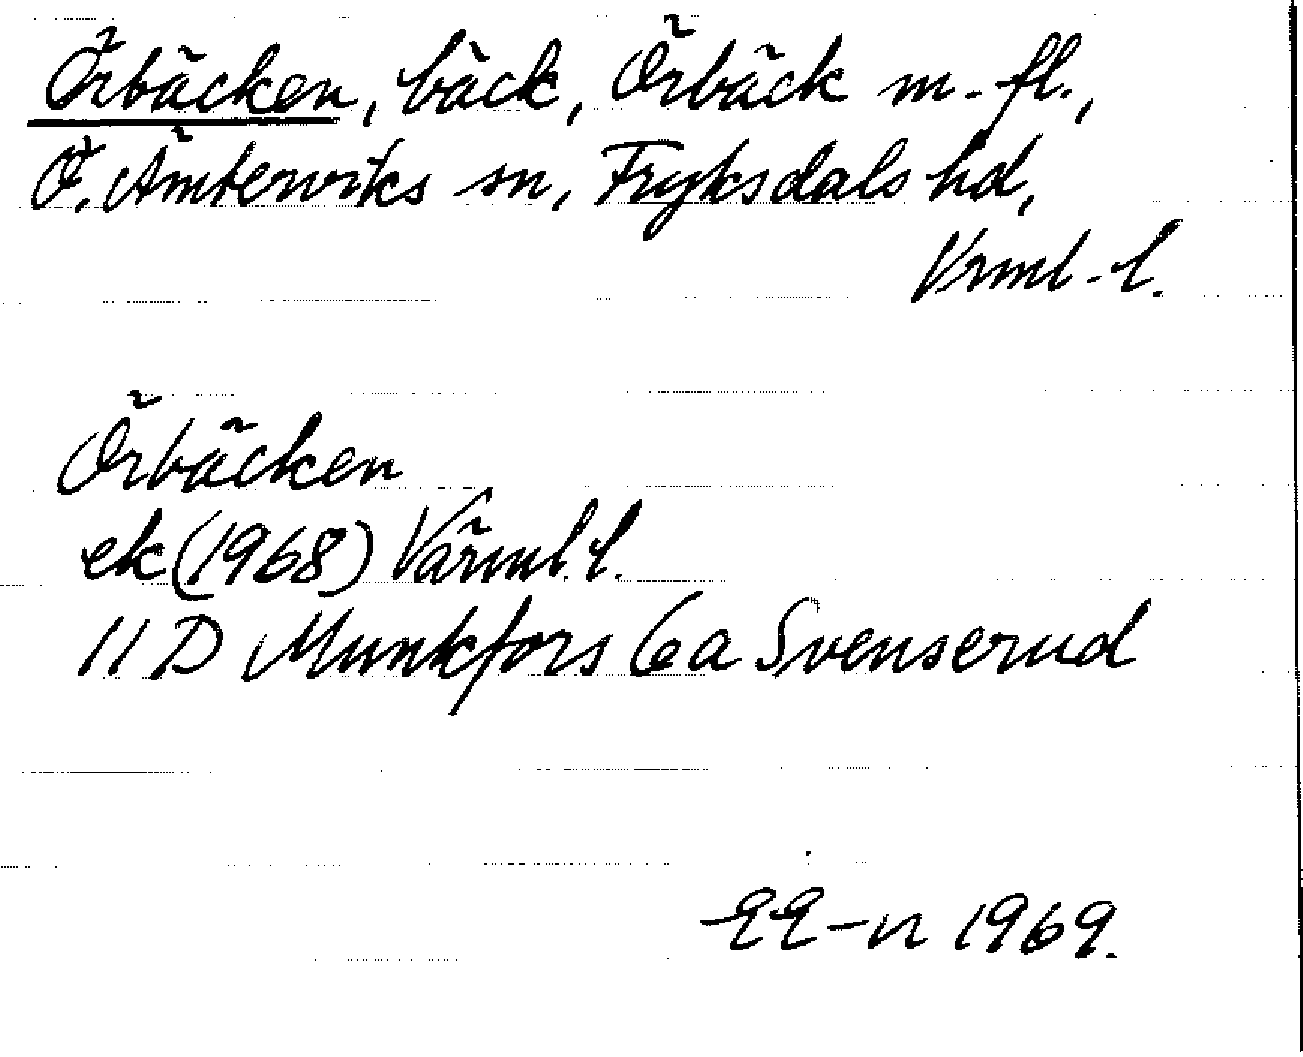 Örbäcken, bäck, Örbäck m. fl.,
Ö. Ämterviks sn, Fryksdals hd,
Vrml. l.
Örbäcken
ek (1968) Värml. l.
11 D Munkfors 6a Svenserud
1969.